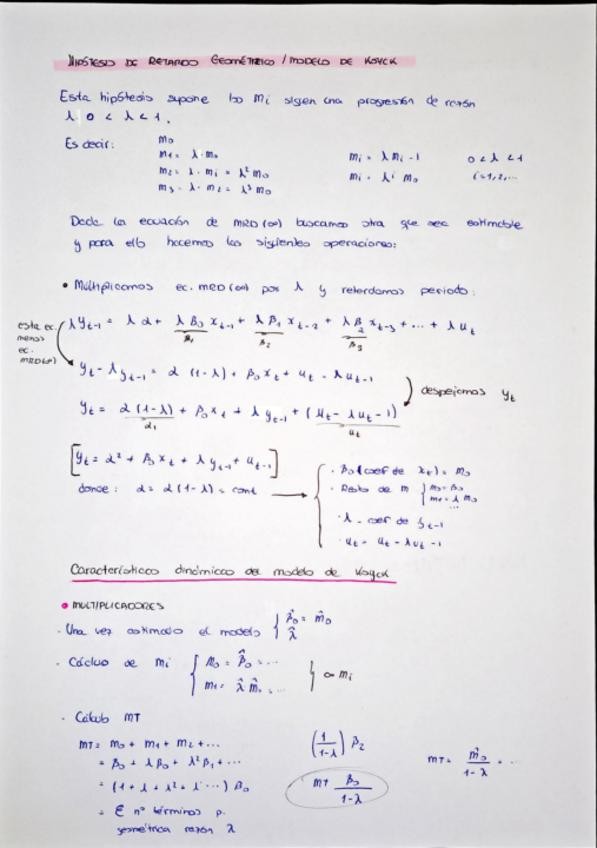 HIPÓTESIS DE RETARDO GEOMÉTRICO / MODELO DE KOYCK
Esta hipótesis supone los mi siguen una progresión de razón
λ 0 < λ < 1.
Es decir: m0
m1 = λ · m0
m2 = λ · m1 = λ² m0
m3 = λ · m2 = λ³ m0
mi = λ mi-1 0 < λ < 1
mi = λ^i m0 i=1,2,...
Dada la ecuación de MRD(∞) buscamos otra que sea estimable
y para ello hacemos las siguientes operaciones:
• Multiplicamos ec. MRD(∞) por λ y retardamos periodo:
λ yt-1 = λ α + λ β0 xt-1 + λ β1 xt-2 + λ β2 xt-3 + ... + λ ut
β1 β2 β3
esta ec.
menos
ec.
MRD(∞)
yt - λ yt-1 = α (1-λ) + β0 xt + ut - λ ut-1
despejamos yt
yt = α (1-λ) + β0 xt + λ yt-1 + (ut - λ ut-1)
α1 ut
[yt = α* + β0 xt + λ yt-1 + ut-1]
donde: α = α (1-λ) = cont
· β0 (coef de xt) = m0
· Resto de m { m0 = β0
m1 = λ m0
...
· λ - coef de yt-1
· ut = ut - λ ut-1
Características dinámicas del modelo de Koyck
• MULTIPLICADORES
- Una vez estimado el modelo { β̂0 = m̂0
λ̂
- Cálculo de mi { m0 = β̂0 = ...
m1 = λ̂ m̂0 = ...
} ∞ mi
- Cálculo MT
MT = m0 + m1 + m2 + ...
= β0 + λ β0 + λ² β1 + ...
= (1 + λ + λ² + λ³ ...) β0
= Σ nº términos p.
geométrica razón λ
(1/1-λ) β2
MT β0/1-λ
MT = m̂0/1-λ = ...